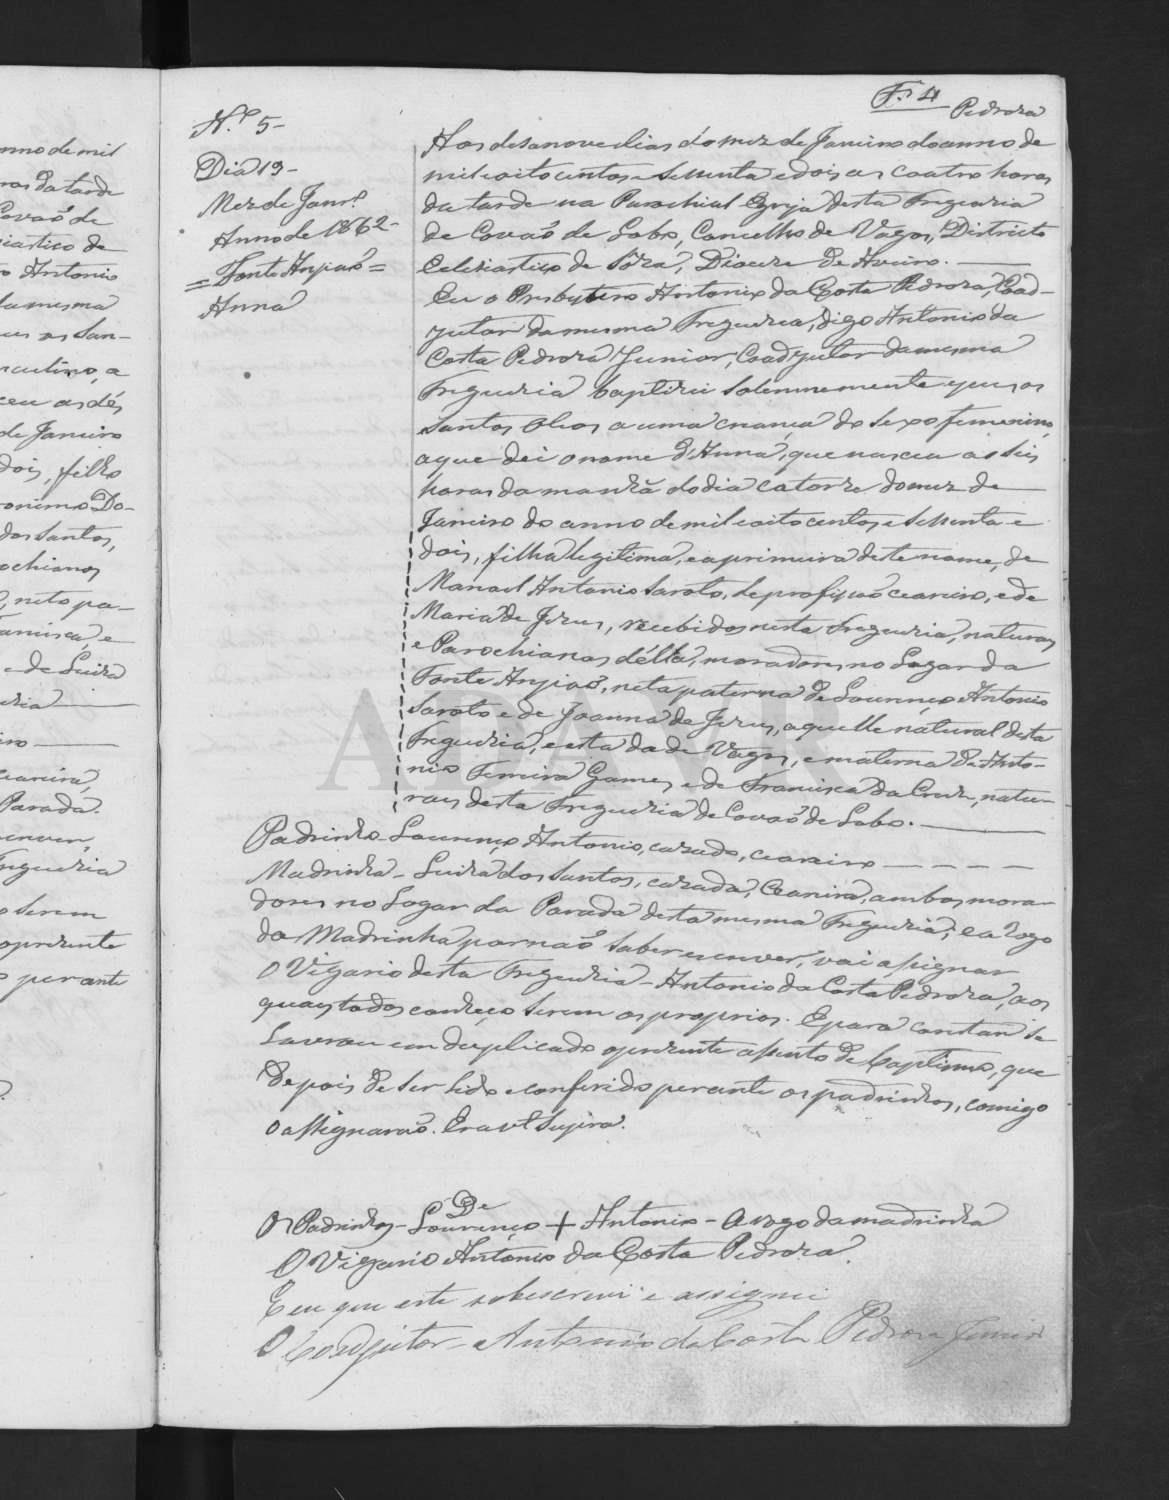 F. 4
Pedroza
N.º 5-
Dia 19-
Mez de Janr.º
Anno de 1862-
= Fonte Anjiaõ =
Anna
Aos desanove dias do mez de Janeiro do anno de
mil e oito centos e sessenta e dois as coatro horas
da tarde na Parochial Egreja desta Freguezia
de Covaõ de Lobo, Concelho de Vagos, Districto
Eclesiastico de Sôza, Diocese de Aveiro.
Eu o Presbytero Antonio da Costa Pedroza, Coad-
jutor da mesma Freguezia, digo Antonio da
Costa Pedroza Junior, Coadjutor da mesma
Freguezia baptizei solemnemente e puz os
Santos Oleos a uma criança do sexo femenino,
a que dei o nome d'Anna, que nasceu as seis
horas da manhã do dia catorze do mez de
Janeiro do anno de mil e oito centos e sessenta e
dois, filha legitima, e a primeira deste nome, de
Manoel Antonio Saroto, de profissaõ ceareiro, e de
Maria de Jezus, recebidos nesta Freguezia, naturaes
e Parochianos d'élla, moradores no Lugar da
Fonte Anjiaõ, neta paterna de Lourenço Antonio
Saroto e de Joanna de Jezus, aquelle natural desta
Freguezia, e esta da de Vagos, e materna de Anto-
nio Ferreira Gomes e de Francisca da Cruz, natu-
raes desta Freguezia de Covaõ de Lobo.
Padrinho Lourenço Antonio, cazado, ceareiro
Madrinha - Luiza dos Santos, cazada, Ceareira, ambos mora-
dores no Logar da Parada desta mesma Freguezia, e a rogo
da Madrinha por naõ saber escrever, vai assignar
O Vigario desta Freguezia - Antonio da Costa Pedroza, aos
quaes todos conheço serem os proprios. E para constar se
Lavrou em duplicado o prezente assento de baptismo, que
depois de ser lido e conferido perante os padrinhos, comigo
o assignaraõ. Era ut supra.
Os Padrinhos - Lourenço + Antonio - A rogo da madrinha
De
O Vigario Antonio da Costa Pedroza.
E eu que este sobescrevi e assignei
O Coadjutor - Antonio da Costa Pedroza Junior